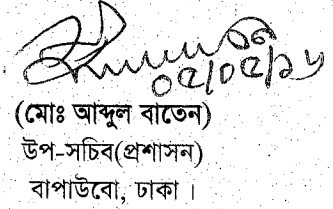 ০৫/০৫/১৬
(মোঃ আব্দুল বাতেন)
উপ-সচিব(প্রশাসন)
বাপাউবো, ঢাকা ।